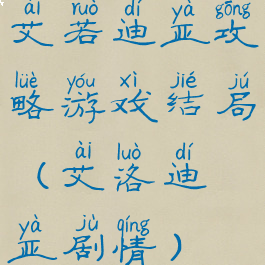 ài ruò dí yà gōng
艾若迪亚攻
lüè yóu xì jié jú
略游戏结局
ài luò dí
（艾洛迪
yà jù qíng
亚剧情）